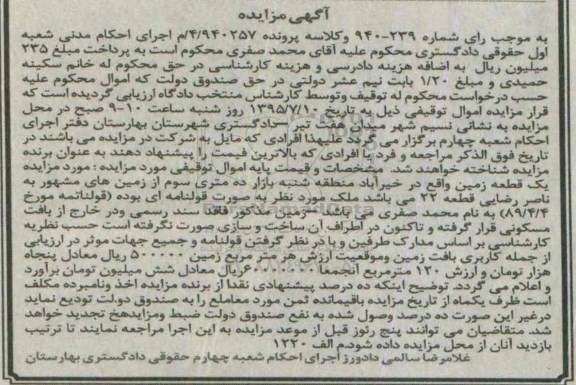 آگهی مزایده
به موجب رای شماره ۲۳۹-۹۴۰ وکلاسه پرونده ۴/۹۴۰۲۵۷/م اجرای احکام مدنی شعبه
اول حقوقی دادگستری محکوم علیه آقای محمد صفری محکوم است به پرداخت مبلغ ۲۳۵
میلیون ریال به اضافه هزینه دادرسی و هزینه کارشناسی در حق محکوم له خانم سکینه
حمیدی و مبلغ ۱/۲۰ بابت نیم عشر دولتی در حق صندوق دولت که اموال محکوم علیه
حسب درخواست محکوم له توقیف وتوسط کارشناس منتخب دادگاه ارزیابی گردیده است که
قرار مزایده اموال توقیفی ذیل به تاریخ ۱۳۹۵/۷/۱۰ روز شنبه ساعت ۱۰-۹ صبح در محل
مزایده به نشانی نسیم شهر میدان هفت تیر دادگستری شهرستان بهارستان دفتر اجرای
احکام شعبه چهارم برگزار می گردد علیهذا افرادی که مایل به شرکت در مزایده می باشند در
تاریخ فوق الذکر مراجعه و فرد یا افرادی که بالاترین قیمت را پیشنهاد دهند به عنوان برنده
مزایده شناخته خواهند شد. مشخصات و قیمت پایه اموال توقیفی مورد مزایده : مورد مزایده
یک قطعه زمین واقع در خیرآباد منطقه شنبه بازار ده متری سوم از زمین های مشهور به
ناصر رضایی قطعه ۲۲ می باشد ملک مورد نظر به صورت قولنامه ای بوده (قولنامه مورخ
۸۹/۴/۴) به نام محمد صفری می باشد – زمین مذکور فاقد سند رسمی ودر خارج از بافت
مسکونی قرار گرفته و تاکنون در اطراف آن ساخت و سازی صورت نگرفته است حسب نظریه
کارشناسی بر اساس مدارک طرفین و با در نظر گرفتن قولنامه و جمیع جهات موثر در ارزیابی
از جمله کاربری بافت زمین وموقعیت ارزش هر متر مربع زمین ۵۰۰۰۰۰ ریال معادل پنجاه
هزار تومان و ارزش ۱۲۰ مترمربع انجمعا ریال معادل شش میلیون تومان برآورد
و اعلام می گردد. توضیح اینکه ده درصد پیشنهادی نقدا از برنده مزایده اخذ ونامبرده مکلف
است ظرف یکماه از تاریخ مزایده باقیمانده ثمن مورد معاملع را به صندوق دولت تودیع نماید
درغیر این صورت ده درصد وصول شده به نفع صندوق دولت ضبط ومزایدهخ تجدید خواهد
شد. متقاضیان می توانند پنج رئوز قبل از موعد مزایده به این اجرا مراجعه نمایند تا ترتیب
بازدید آنان از محل مزایده داده شودم الف ۱۲۲۰
غلامرضا سالمی دادورز اجرای احکام شعبه چهارم حقوقی دادگستری بهارستان